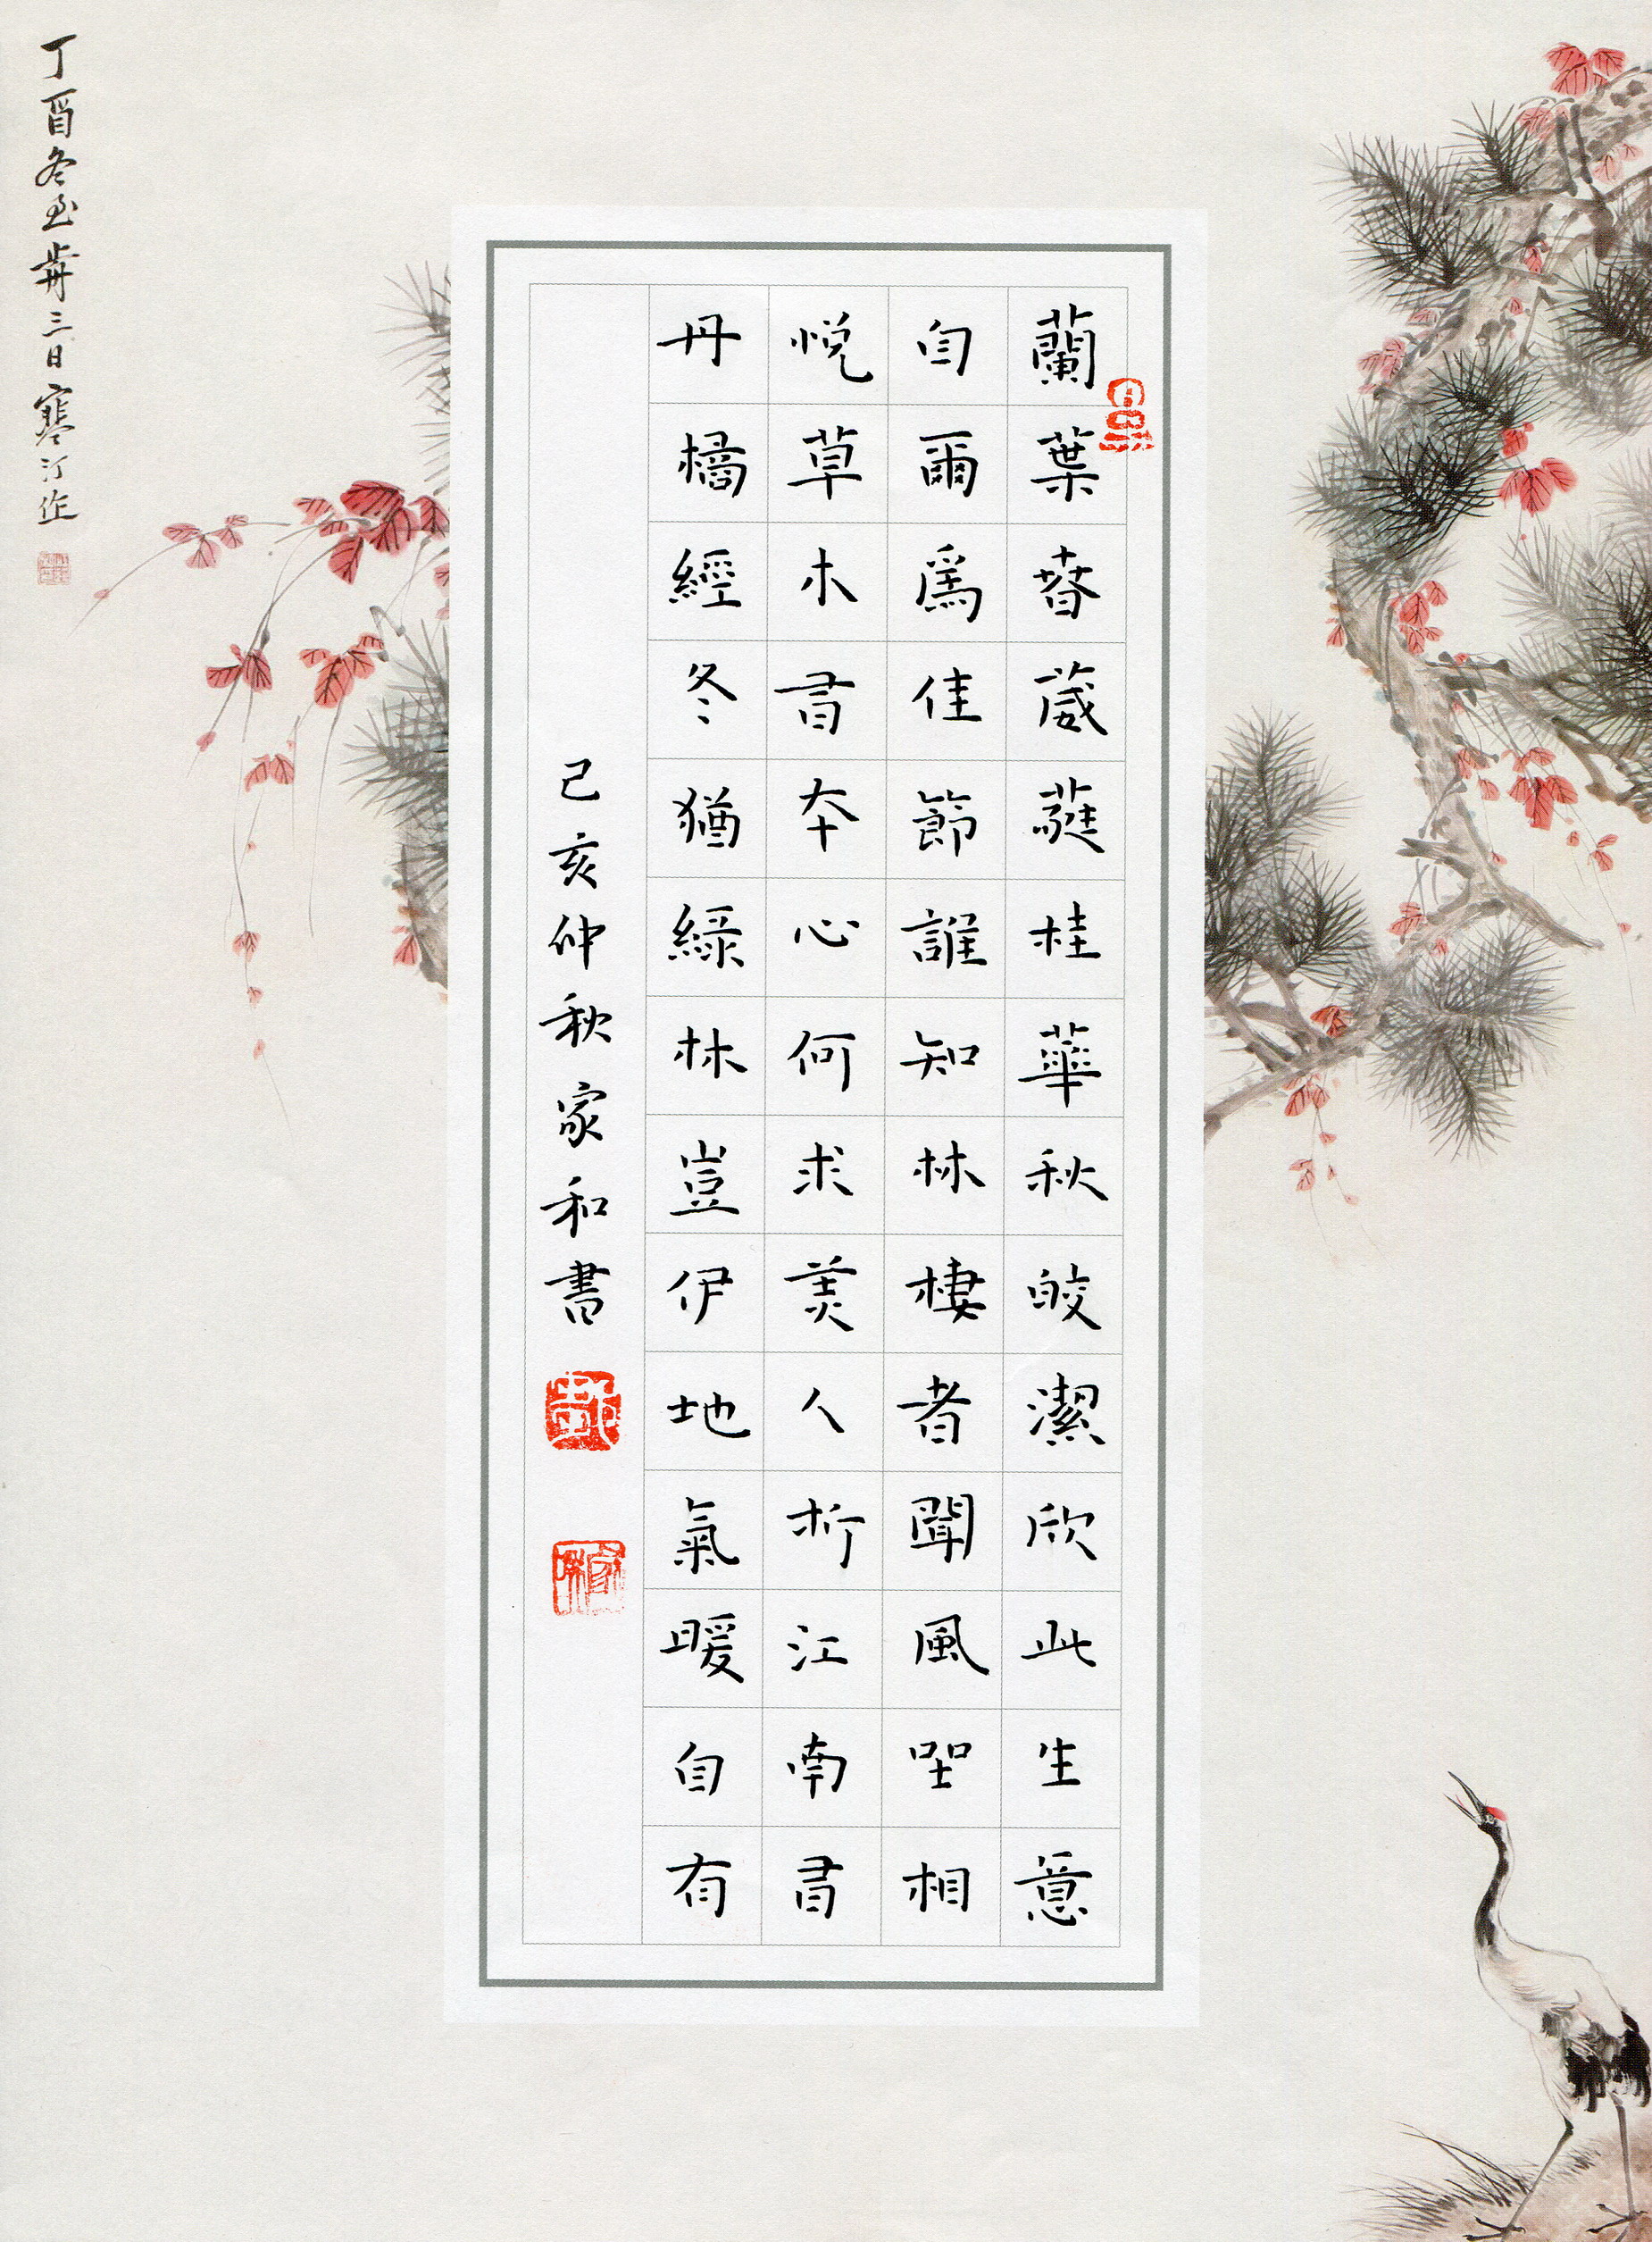 蘭葉春葳蕤桂華秋皎潔欣此生意
自爾爲佳節誰知林棲者聞風坐相
悅草木有本心何求美人折江南有
丹橘經冬猶綠林豈伊地氣暖自有
己亥仲秋家和書
丁酉冬至歬三日寒汀作